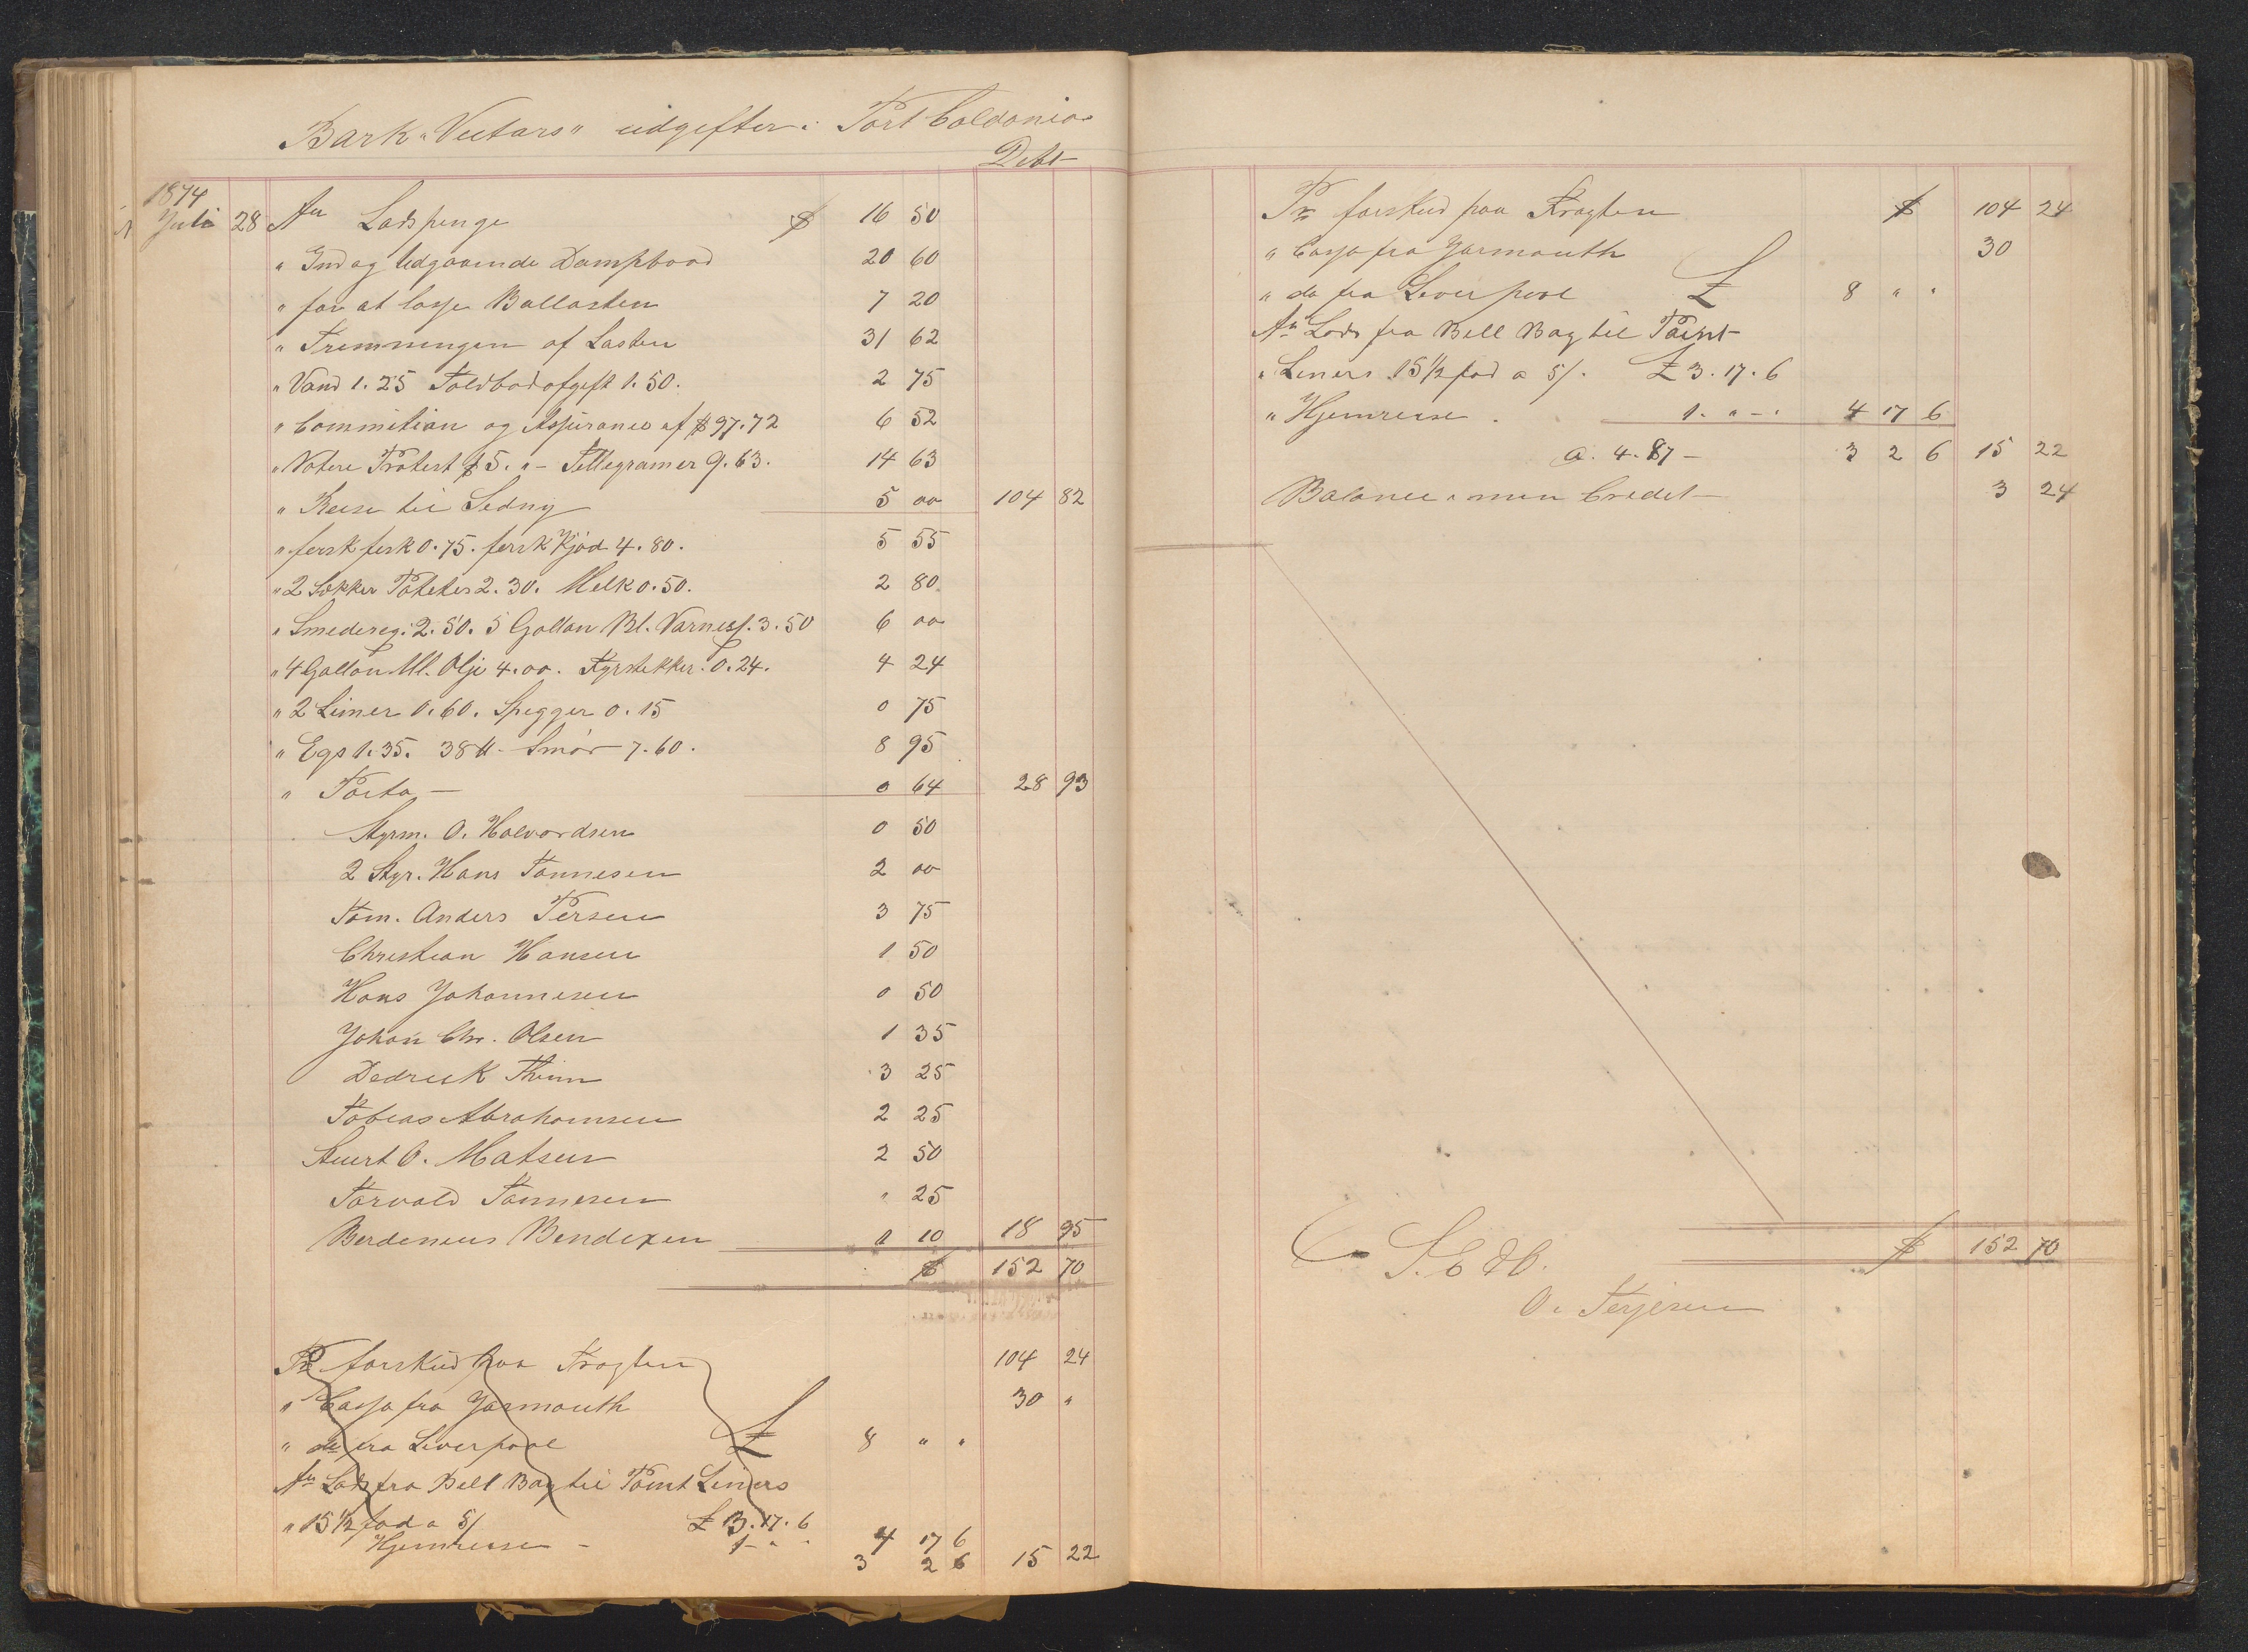 Bark "Vectars" udgifter i Port Caldonia
Debt
1874
Juli 28 An Lodspenge $ 16 50
" Ind og Udgaaende Dampbaad 20 60
" for at losse Ballasten 7 20
" Tremningen af Lasten 31 62
" Vand 1.25 Toldbodafgift 1.50. 2 75
" Commitian og Assurance af $97.72 6 52
" Notere Protest $5. " - Tellegramer 9.63. 14 63
" Reise til Sedny 5 00 104 82
" fersk fisk 0.75. fersk Kjød 4.80. 5 55
" 2 Sækker Poteter 2.30. Melk 0.50. 2 80
" Smedereg: 2.50. 5 Gallon Bl. Varness. 3.50 6 00
" 4 Gallon Ml. Olje 4.00. Fyrstekker. 0.24. 4 24
" 2 Limer 0.60. Spegger 0.15 0 75
" Egs 1.35. 38 ℔ Smør 7.60. 8 95
" Porto — 0 64 28 93
Styrm. O. Halvordsen 0 50
2 Styr. Hans Tønnesen 2 00
Tøm. Anders Persen 3 75
Christian Hansen 1 50
Hans Johannesen 0 50
Johan Chr. Olsen 1 35
Dedrick Thim 3 25
Tobias Abrahamsen 2 25
Stuert O. Matsen 2 50
Torvald Tønnesen " 25
Berdeneus Bendixen 1 10 18 95
$ 152 70
Pr forskud paa Fragten 104 24
" Cassa fra Yarmouth 30 "
" do fra Liverpool £ 8 " "
An Lods fra Bell Bay til Point Liners
" 15 1/2 fod a 5/ £ 3.17.6
Hjemreise - 1 - " . 4 17 6
3 2 6 15 22
Pr forskud paa Fragten $ 104 24
" Cassa fra Yarmouth 30
" do fra Liverpool £ 8 " "
An Lods fra Bell Bay til Point
" Liners 15 1/2 fod a 5/. £ 3.17.6
" Hjemreise . 1. " - . 4 17 6
a. 4.87 - 3 2 6 15 22
Balance i min Credit 3 24
$ 152 70
S. E & O.
O. Terjesen